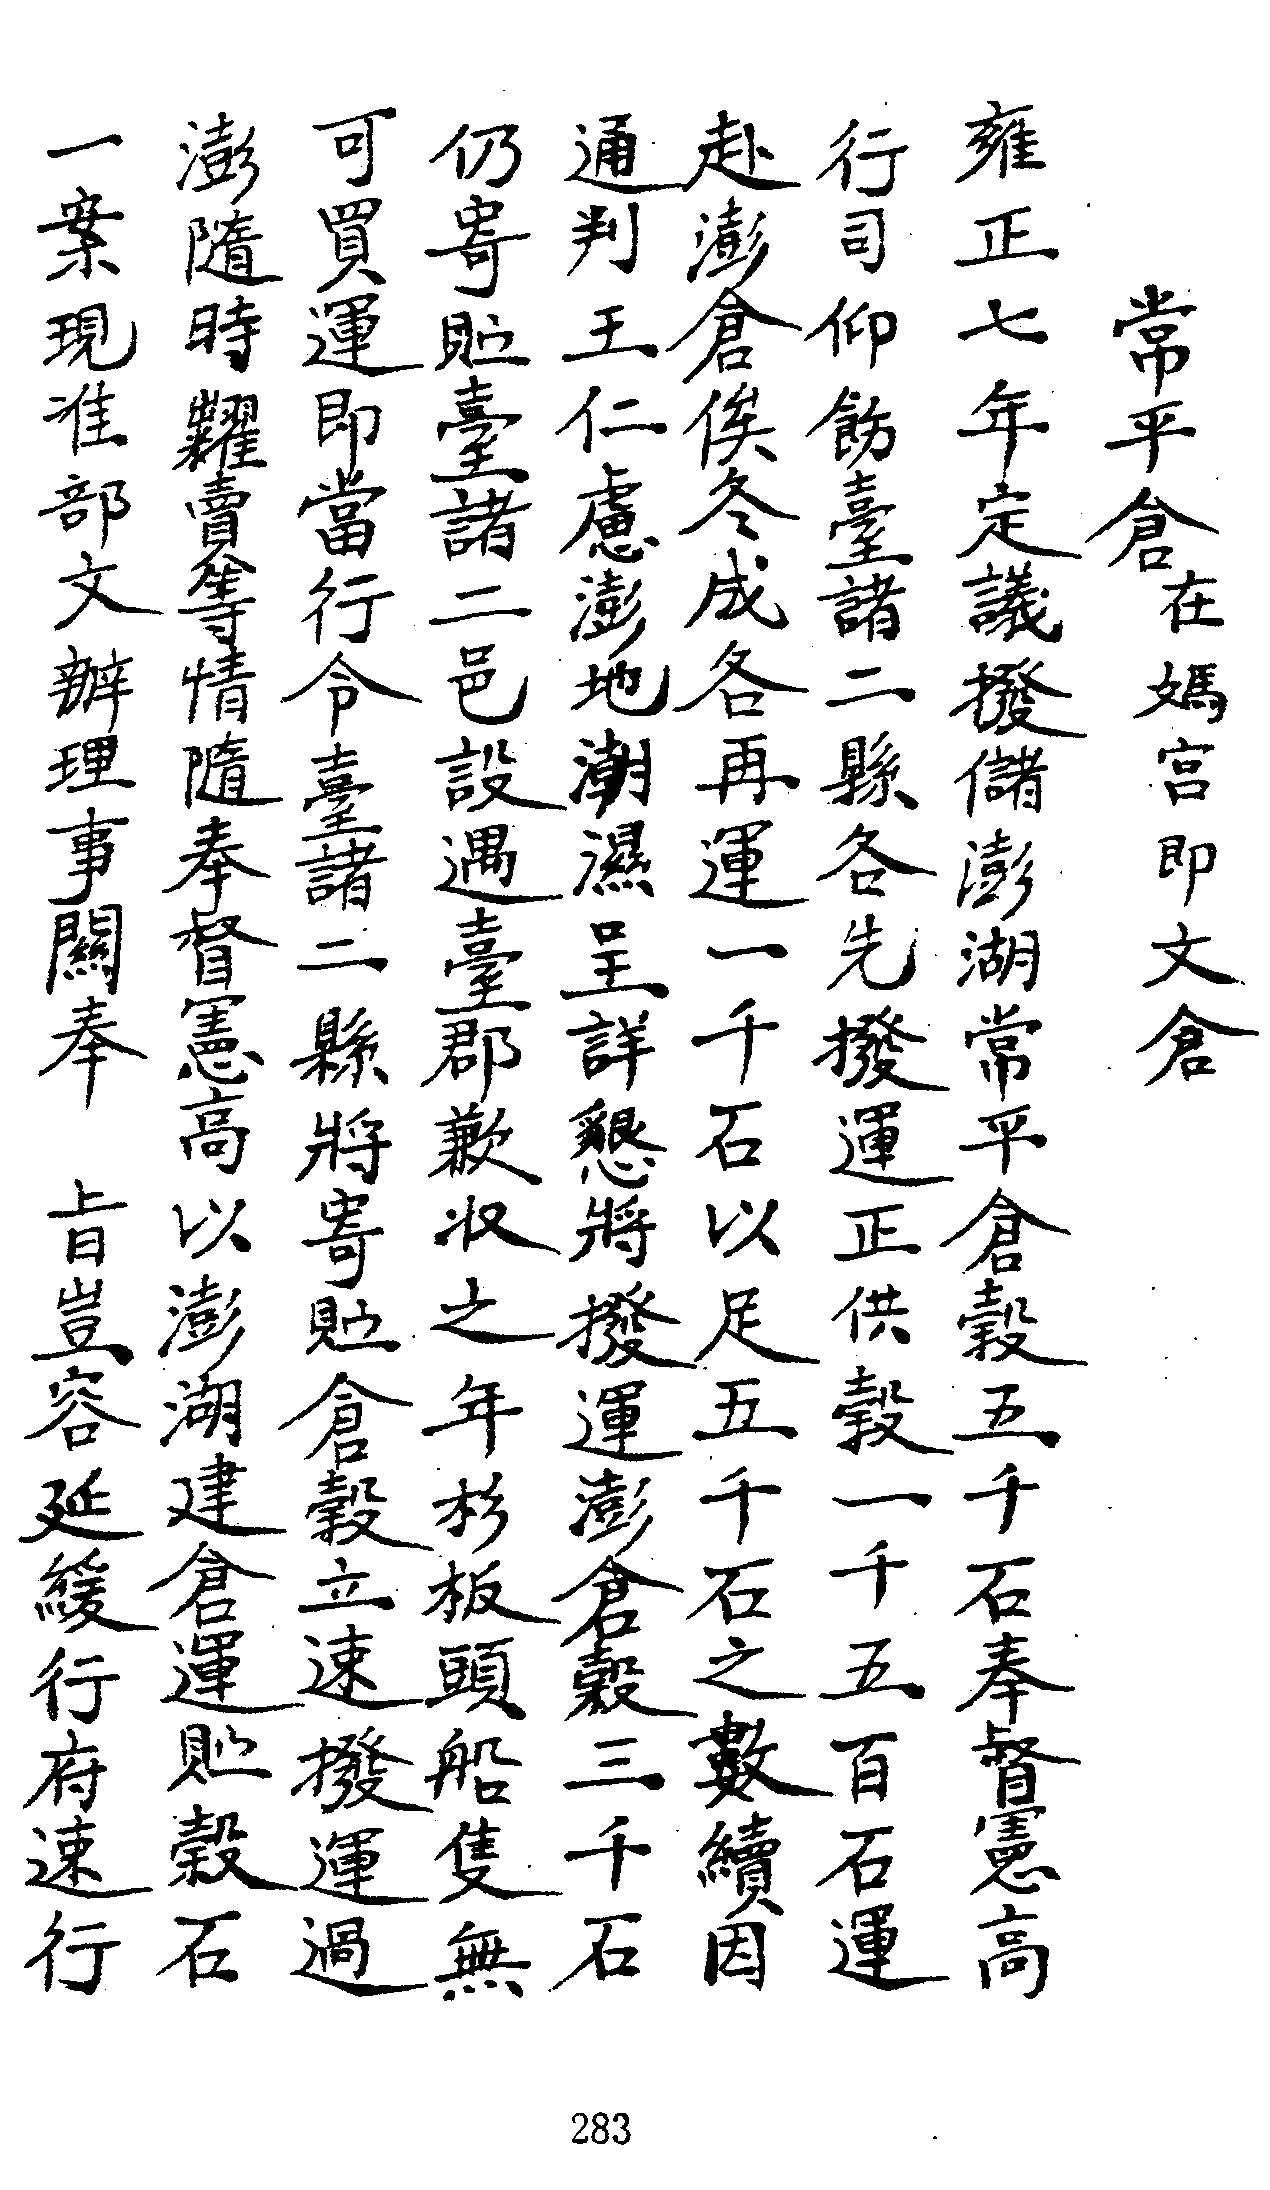 常平倉在媽宮即文倉
雍正七年定議撥儲澎湖常平倉穀五千石奉督憲高
行司仰飭臺諸二縣各先撥運正供穀一千五百石運
赴澎倉俟冬成各再運一千石以足五千石之數續因
通判王仁慮澎地潮濕呈詳懇將撥運澎倉穀三千石
仍寄貯臺諸二邑設遇臺郡歉收之年杉板頭船隻無
可買運即當行令臺諸二縣將寄貯倉穀立速撥運過
澎隨時糶賣等情隨奉督憲高以澎湖建倉運貯穀石
一案現准部文辦理事關奉　旨豈容延緩行府速行
283